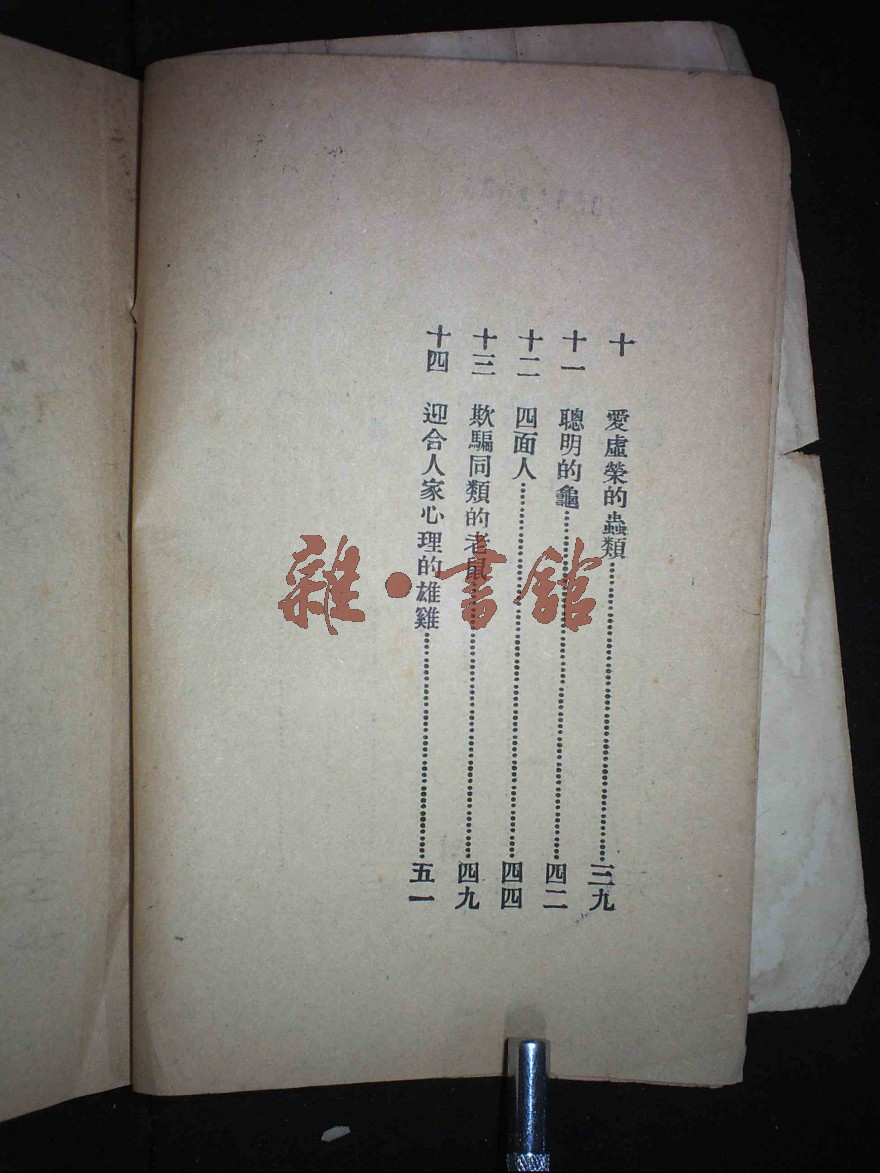 十 愛虛榮的蟲類……三九
十一 聰明的龜……四二
十二 四面人……四四
十三 欺騙同類的老鼠……四九
十四 迎合人家心理的雄雞……五一
雜·書館